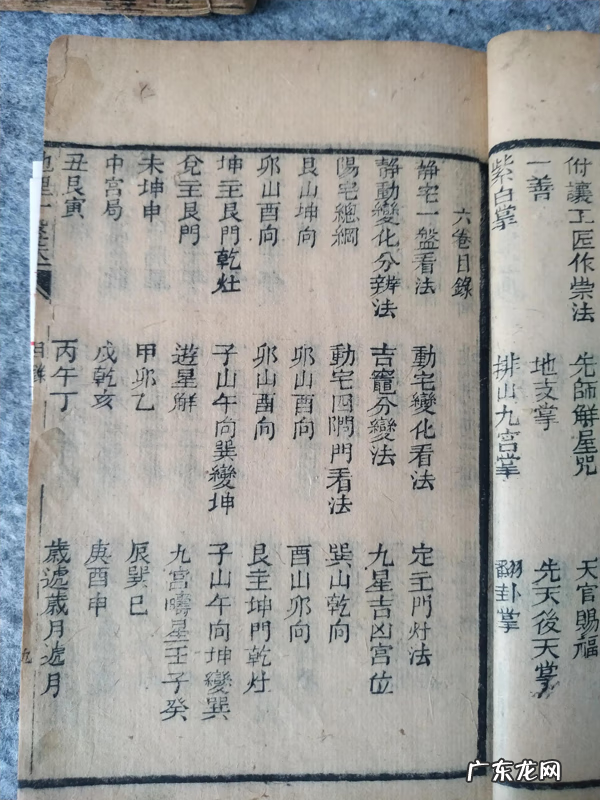 付讓工匠作祟法 先師解星咒 天官賜福
一善 地支掌 先天後天掌
紫白掌 排山九宮掌 翻卦掌
六卷目錄
静宅一盤看法 動宅變化看法 定主門灶法
静動變化分辨法 吉竈分變法 九星吉凶宮位
陽宅總綱 動宅四隅門看法 巽山乾向
艮山坤向 卯山酉向 酉山卯向
卯山酉向 卯山酉向 艮主坤門乾灶
坤主艮門乾灶 子山午向巽變坤 子山午向坤變巽
兌主艮門 遊星解 九宮疇星壬子癸
未坤申 甲卯乙 辰巽巳
中宮局 戌乾亥 庚酉申
丑艮寅 丙午丁 歲遞歲月遞月
目錄
九
广东龙网